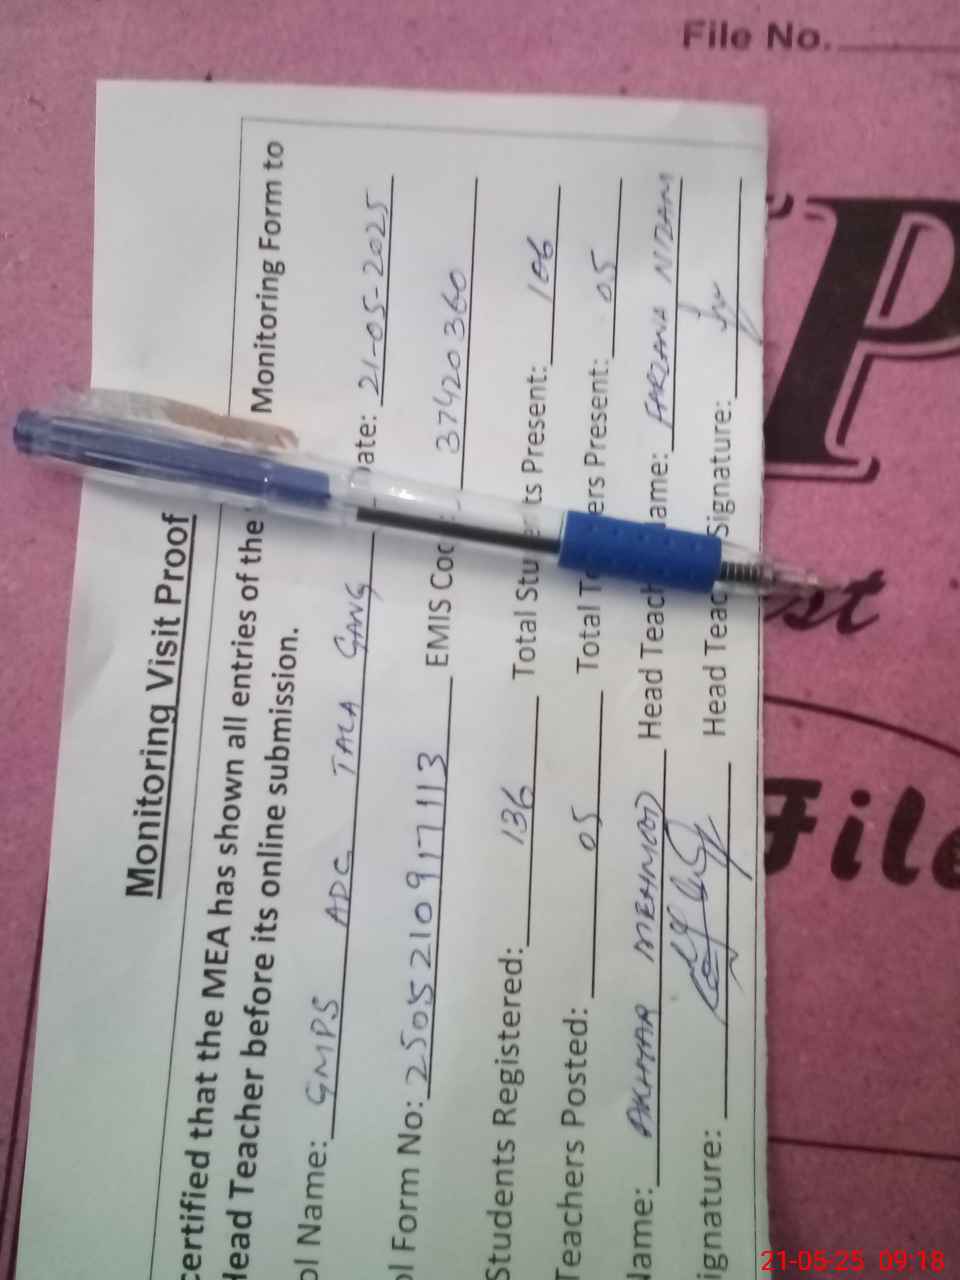 File No.
Monitoring Visit Proof
certified that the MEA has shown all entries of the Monitoring Form to
Head Teacher before its online submission.
ol Name: GMPS ADC TALA GANG ate: 21-05-2025
ol Form No: 2505210917113 EMIS Cod 37420360
Students Registered: 136 Total Students Present: 106
Teachers Posted: 05 Total T ers Present: 05
Name: AKHTAR MEHMOOD Head Teach ame: FARZANA NIZAM
ignature: Head Teac Signature:
P
st
File
21-05-25 09:18